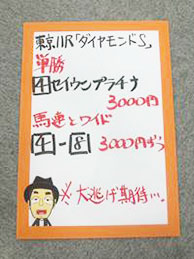 東京11R「ダイヤモンドS」
単勝
4セイウンプラチナ
3000円
馬連とワイド
4-8 3000円ずつ
※大逃げ期待…。